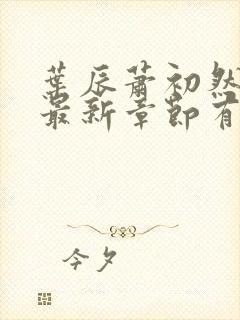 葉辰蕭初然
最新章節有
今夕